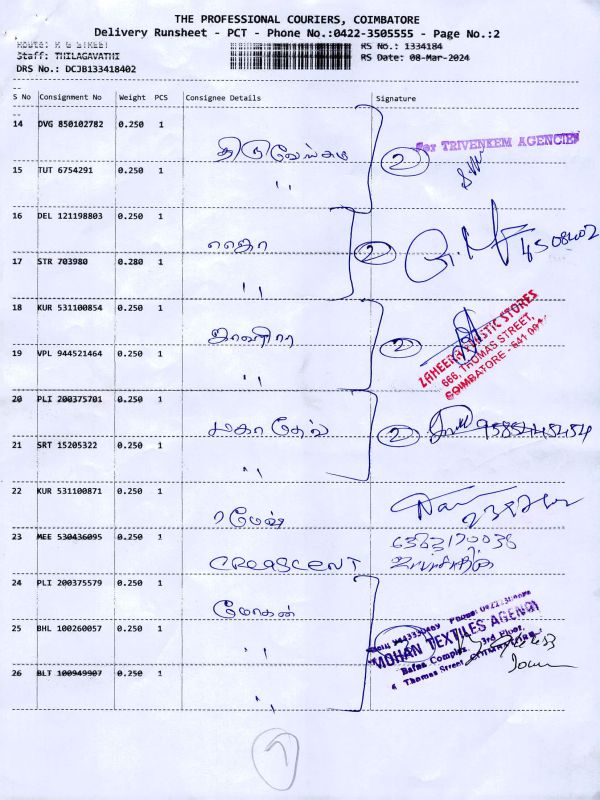 THE PROFESSIONAL COURIERS, COIMBATORE
Delivery Runsheet - PCT - Phone No.:0422-3505555 - Page No.:2
Route: R G STREET
RS No.: 1334184
Staff: THILAGAVATHI
RS Date: 08-Mar-2024
DRS No.: DCJB133418402
S No Consignment No Weight PCS Consignee Details Signature
14 DVG 850102782 0.250 1 2 For TRIVENKEM AGENCIES
15 TUT 6754291 0.250 1 "
16 DEL 121198803 0.250 1 2
17 STR 703980 0.280 1 "
18 KUR 531100854 0.250 1 2 ZAHEER PLASTIC STORES
666, THOMAS STREET,
COIMBATORE - 641 001
19 VPL 944521464 0.250 1 "
20 PLI 200375701 0.250 1 மகாதேவ் 2
21 SRT 15205322 0.250 1 "
22 KUR 531100871 0.250 1 ரமேஷ்
23 MEE 530436095 0.250 1 CREASCENT 6383170038
24 PLI 200375579 0.250 1 மோகன்
25 BHL 100260057 0.250 1 " MOHAN TEXTILES AGENCY
3rd Floor,
Thomas Street
26 BLT 100949907 0.250 1 "
7